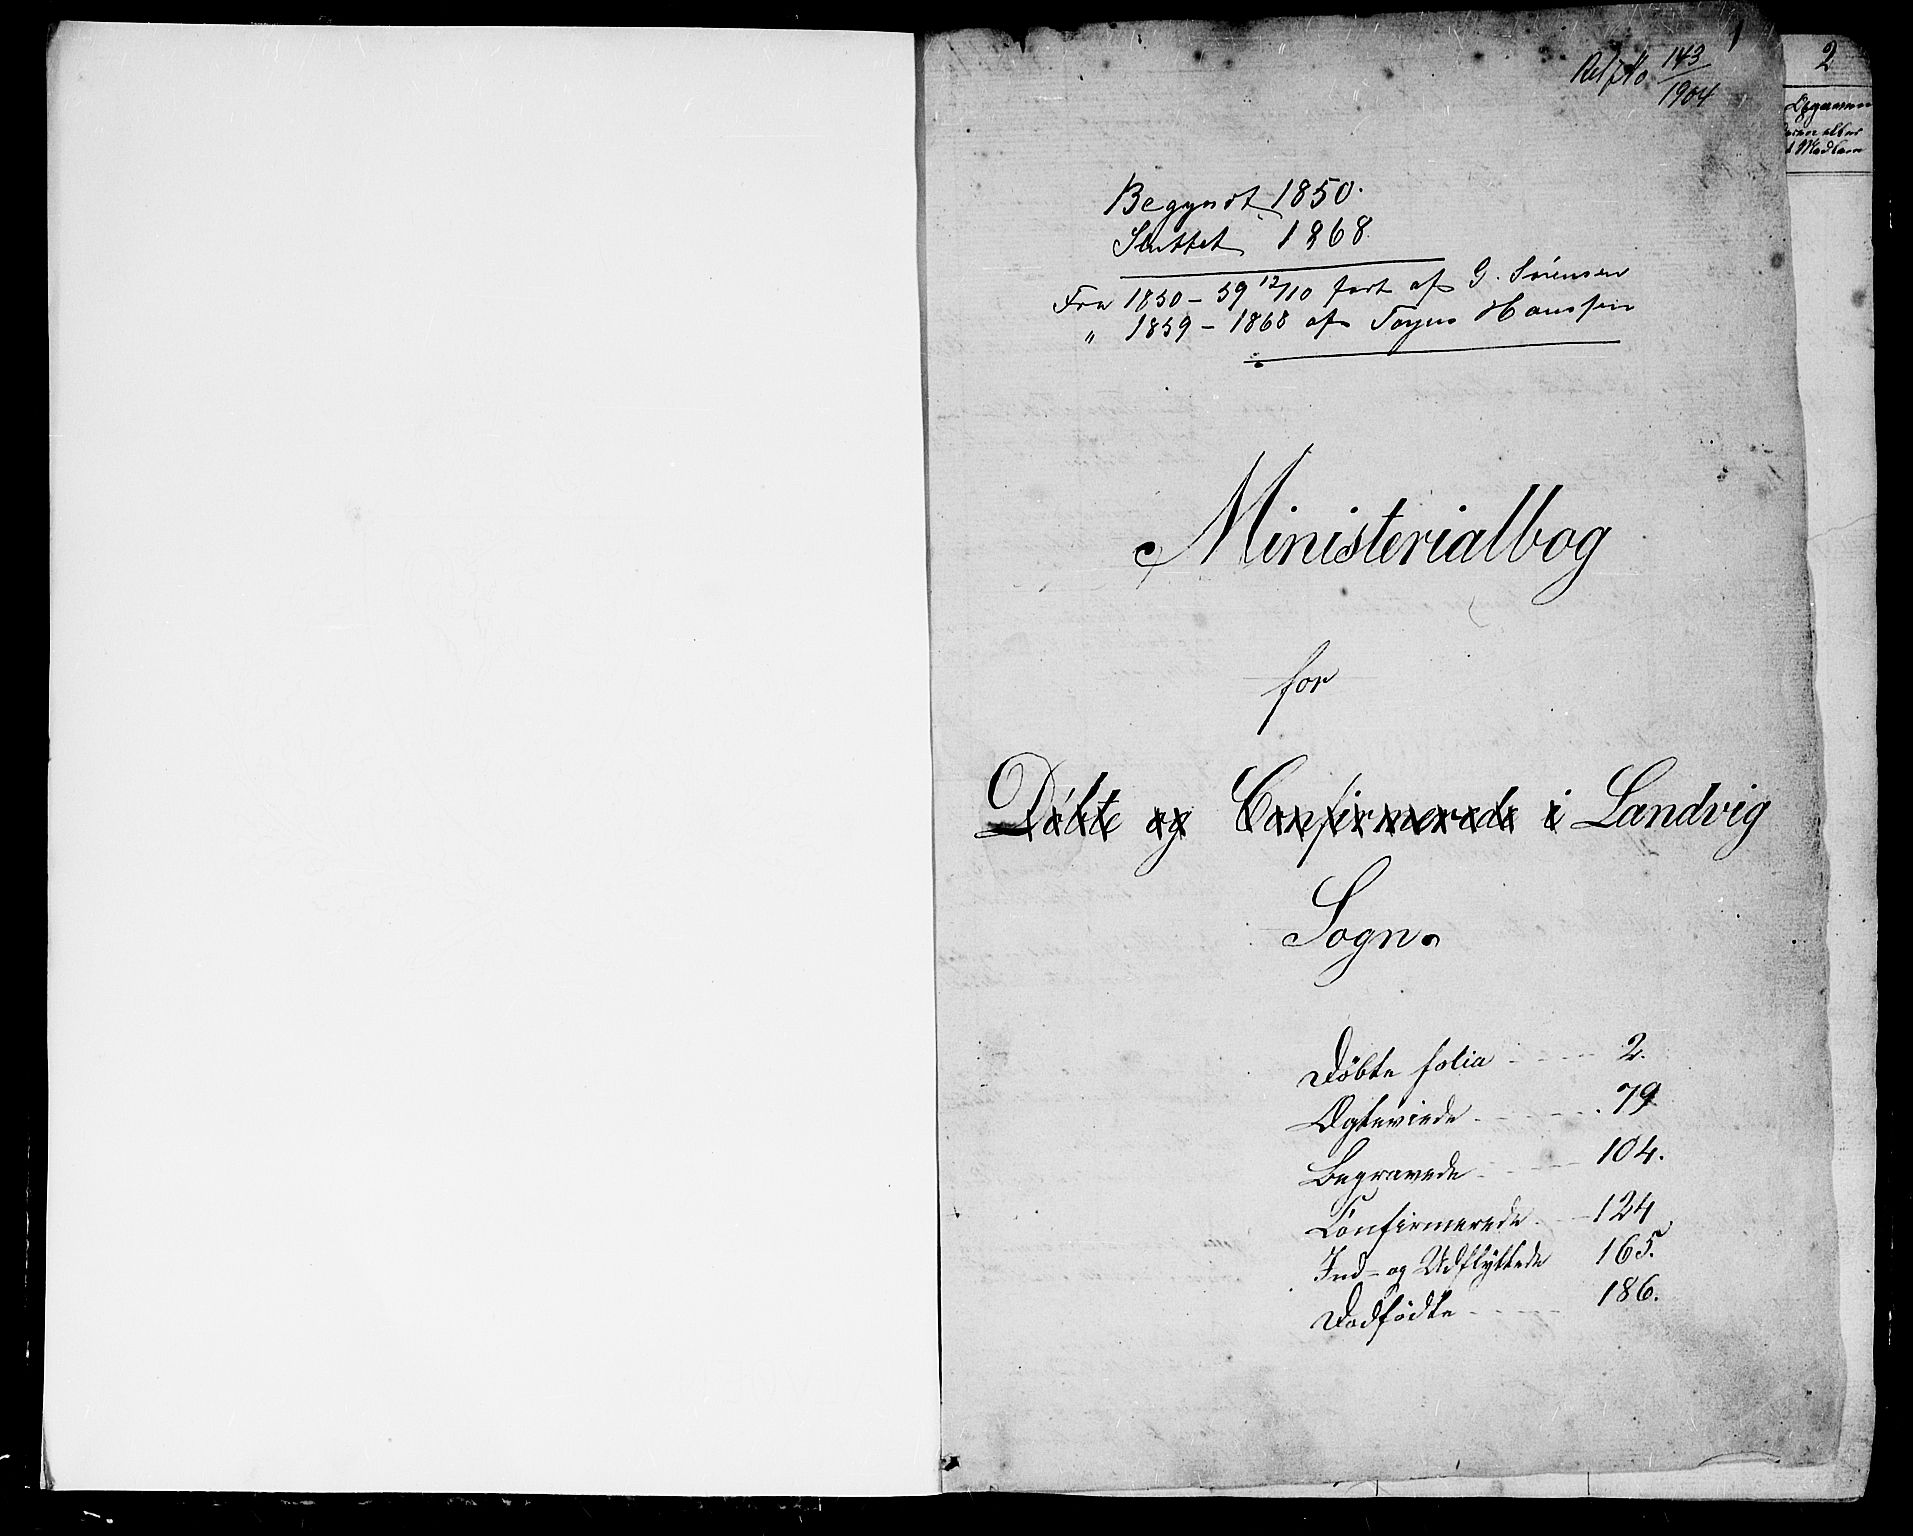 1
143
1904
Begyndt 1850.
Sluttet 1868
Fra 1850 – 59 12/10 ført af G. Sørensen
" 1859 – 1868 af Hanssen
Ministerialbog
for
Døbte og Confirmerede i Landvig
Sogn.
Døbte folia - - - - 2.
Ægteviede - - - - 79
Begravede - - - - 104.
Confirmerede - - 124
Ind- og Udflyttede 165.
Dødfødte - - - - 186.
2